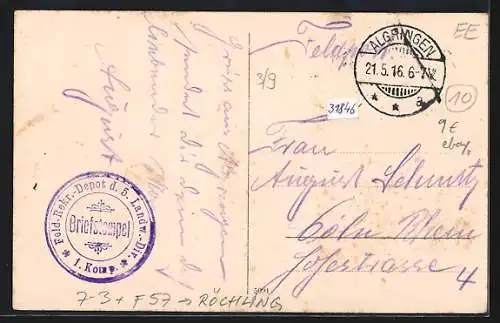 Feldpost
EE
ALGRINGEN
21.5.16.6-7N.
* * a
3/9
31846
10
9€
ebay
Gruß aus Algringen
sendet dir dein
August
Frau
August Schmitz
Cöln Rhein
Hofestrasse 4
Feld-Rekr.-Depot d. 5. Landw.-Div.
Briefstempel
* 1. Komp. *
7-3 + F57 → RÖCHLING